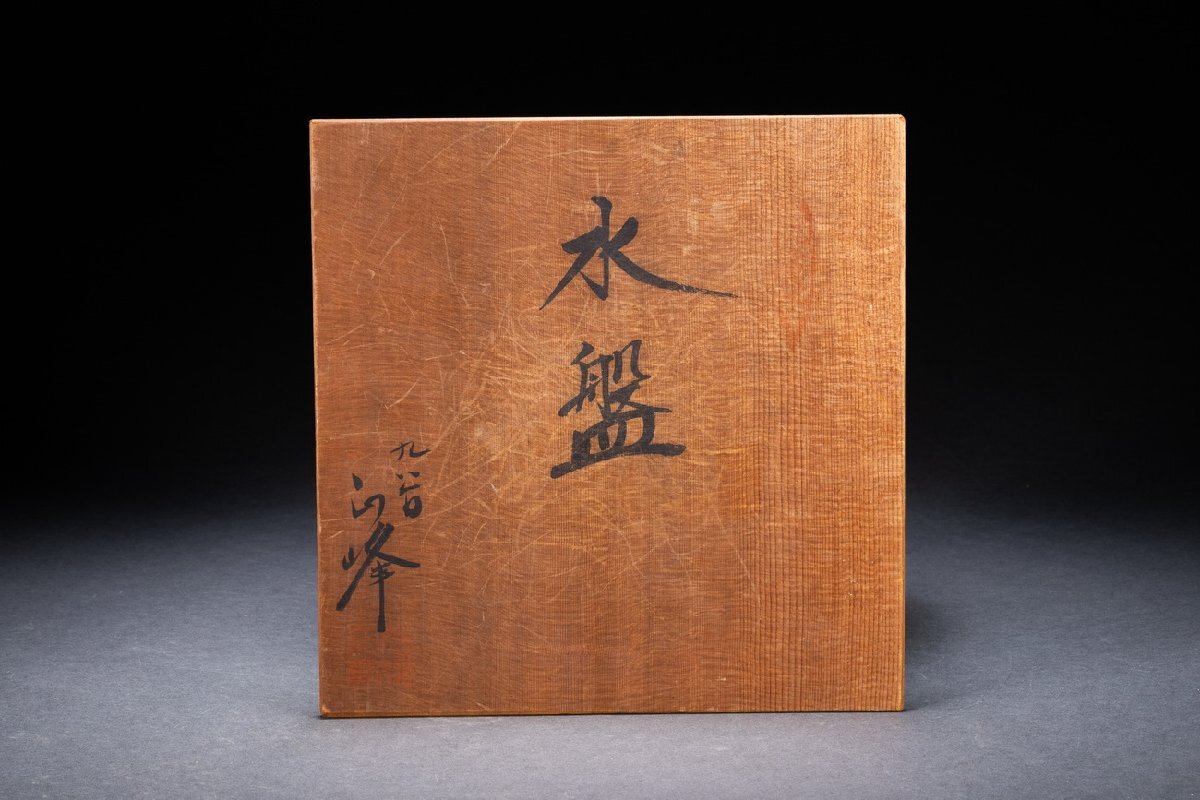 水盤
九谷
山峰